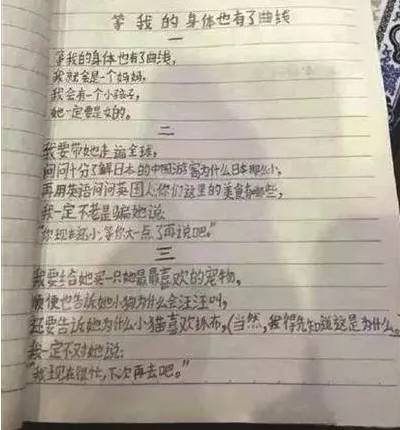 等我的身体也有了曲线
一
等我的身体也有了曲线，
我就会是个妈妈，
我会有一个小孩子，
她一定要是女的。
二
我要带她走遍全球，
问问十分了解日本的中国游客为什么日本那么小，
再用英语问问英国人：你们这里的美食有哪些，
我一定不老是骗她说：
“你现在还小，等你大一点了再说吧。”
三
我要给她买一只她最最喜欢的宠物，
顺便也告诉她小狗为什么会汪汪叫，
还要告诉她为什么小猫喜欢抓布，（当然，我得先知道这是为什么。
我一定不对她说：
“我现在很忙，下次再去吧。”